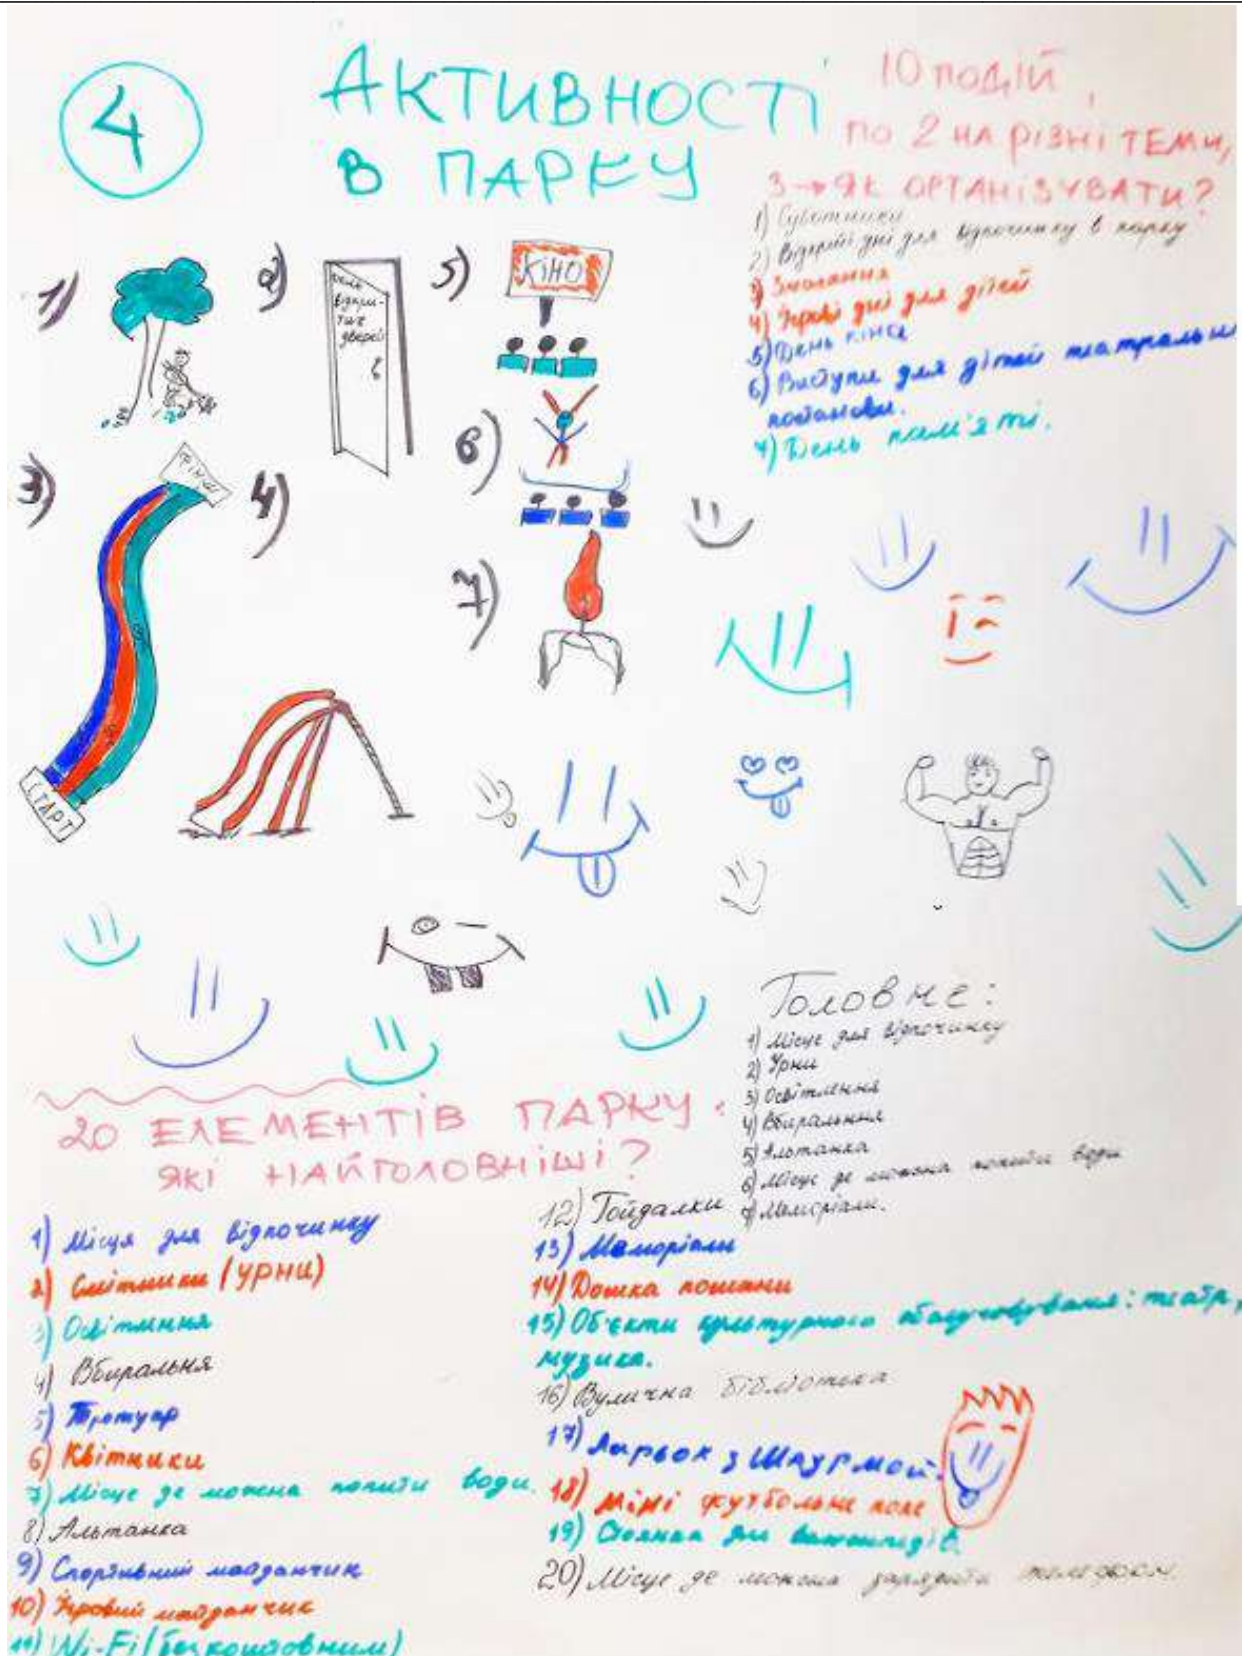 4
АКТИВНОСТІ
В ПАРКУ
10 подій,
по 2 на різні теми,
3 → як організувати?
1) Суботники
2) Відкриті дні для відпочинку в парку
3) Змагання
4) Ігрові дні для дітей
5) День кіно
6) Виступи для дітей театральні
постанови.
7) День пам'яті.
1)
2)
День
відкри-
тих
дверей
5)
КІНО
6)
3)
ФІНІШ
4)
7)
СТАРТ
Головне:
1) Місце для відпочинку
2) Урни
3) Освітлення
4) Вбиральня
5) Альтанка
6) Місце де можна попити води
7) Меморіали.
20 ЕЛЕМЕНТІВ ПАРКУ:
ЯКІ НАЙГОЛОВНІШІ?
1) Місця для відпочинку
2) Смітники (урни)
3) Освітлення
4) Вбиральня
5) Тротуар
6) Квітники
7) Місце де можна попити води.
8) Альтанка
9) Спортивний майданчик
10) Ігровий майданчик
11) Wi-Fi (безкоштовним)
12) Гойдалки
13) Меморіали
14) Дошка пошани
15) Об'єкти культурного обслуговування: театр,
музика.
16) Вулична бібліотека
17) Ларьок з шаурмой.
18) Міні футбольне поле
19) Стоянка для велосипедів
20) Місце де можна зарядити телефон.